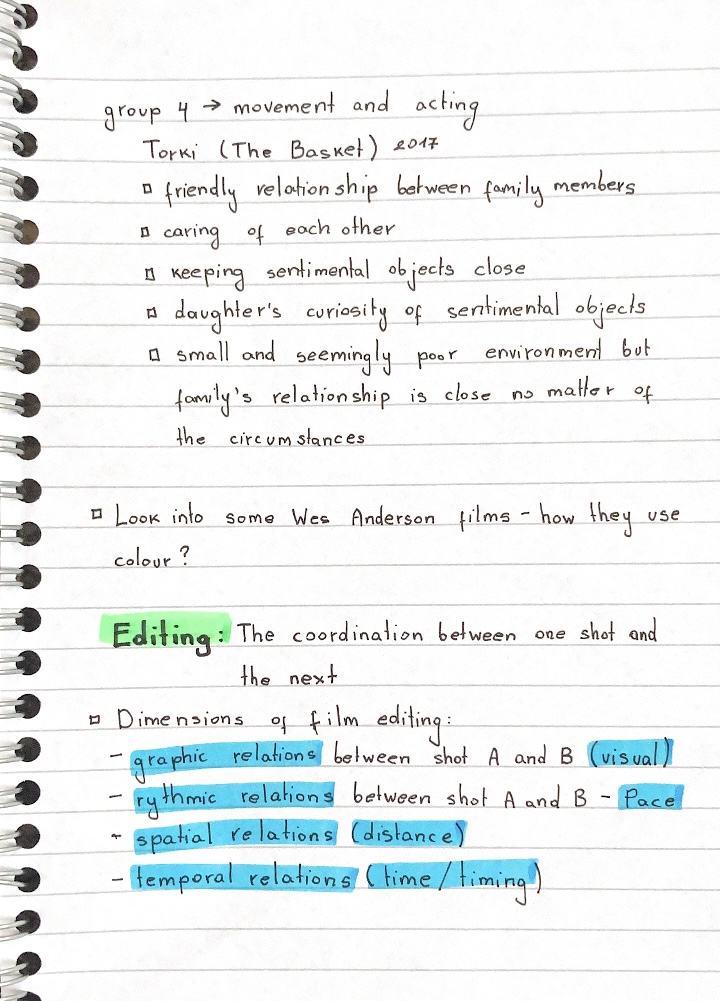 group 4 → movement and acting
Torki (The Basket) 2017
▫ friendly relationship between family members
▫ caring of each other
▫ keeping sentimental objects close
▫ daughter's curiosity of sentimental objects
▫ small and seemingly poor environment but
family's relationship is close no matter of
the circumstances
▫ Look into some Wes Anderson films - how they use
colour?
Editing: The coordination between one shot and
the next
▫ Dimensions of film editing:
- graphic relations between shot A and B (visual)
- rythmic relations between shot A and B - Pace
- spatial relations (distance)
- temporal relations (time/timing)